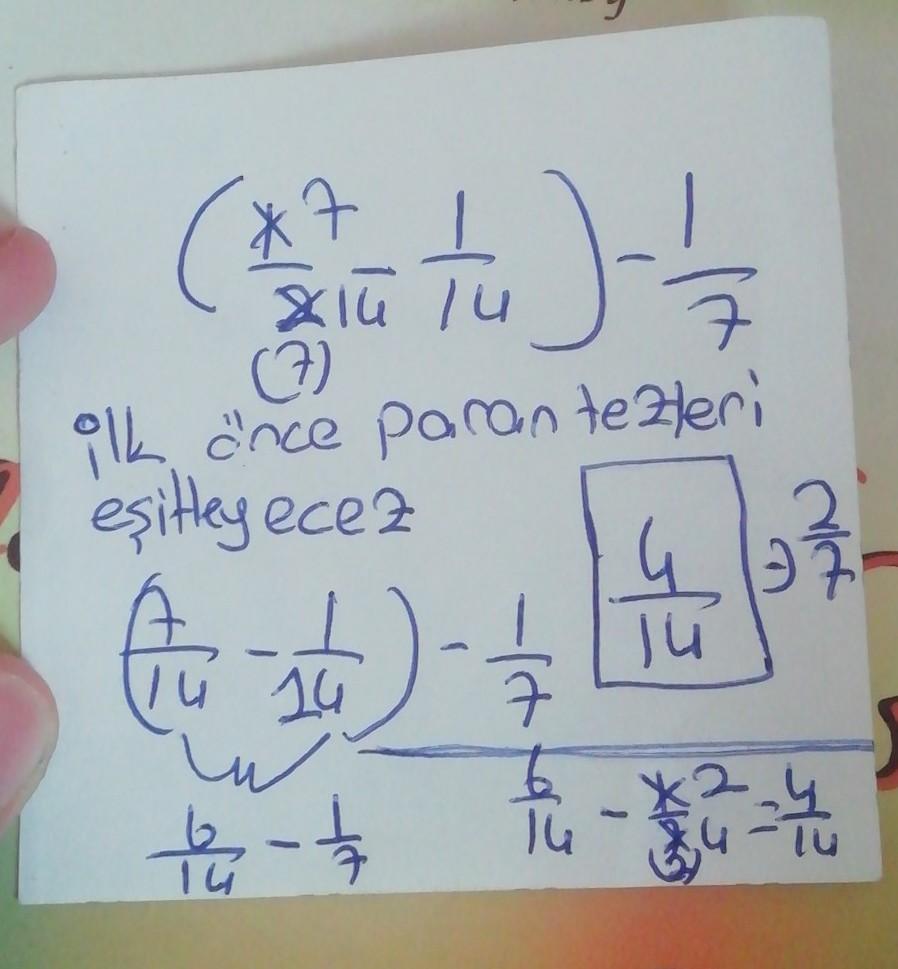 (1̶ 7/2̶ 14 - 1/14) - 1/7
(7)
ilk önce parantezleri
eşitleyecez
4/14 => 2/7
(7/14 - 1/14) - 1/7
6/14 - 1/7
6/14 - 1̶ 2/7̶ 14 = 4/14
(2)